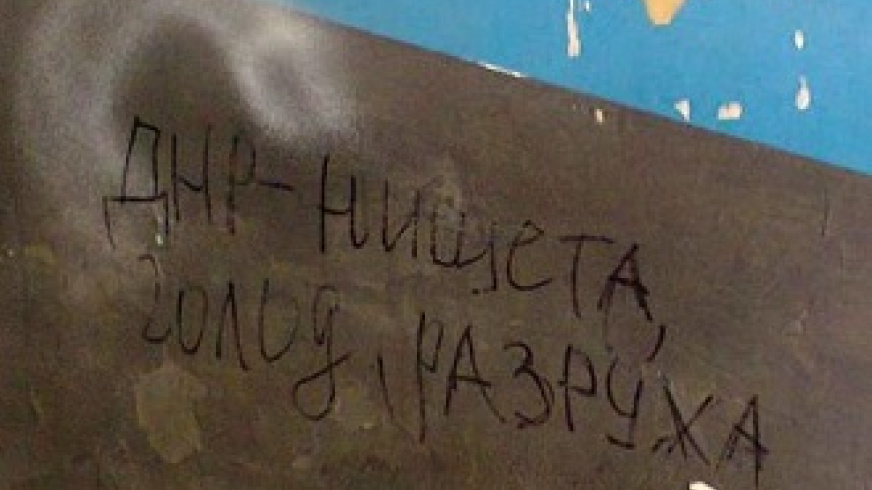 ДНР-НИЩЕТА,
голод, РАЗРУХА